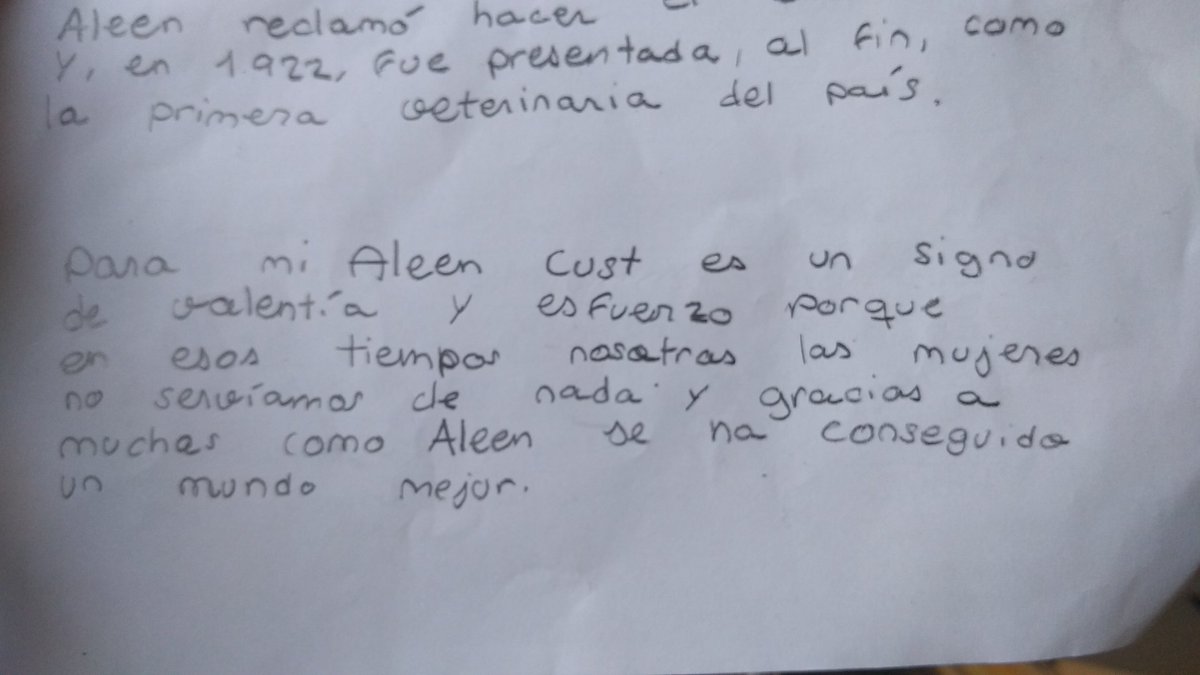 Aleen reclamó hacer
Y, en 1.922, fue presentada, al fin, como
la primera veterinaria del país.
Para mi Aleen Cust es un signo
de valentía y esfuerzo porque
en esos tiempos nosotras las mujeres
no servíamos de nada y gracias a
muchas como Aleen se ha conseguido
un mundo mejor.